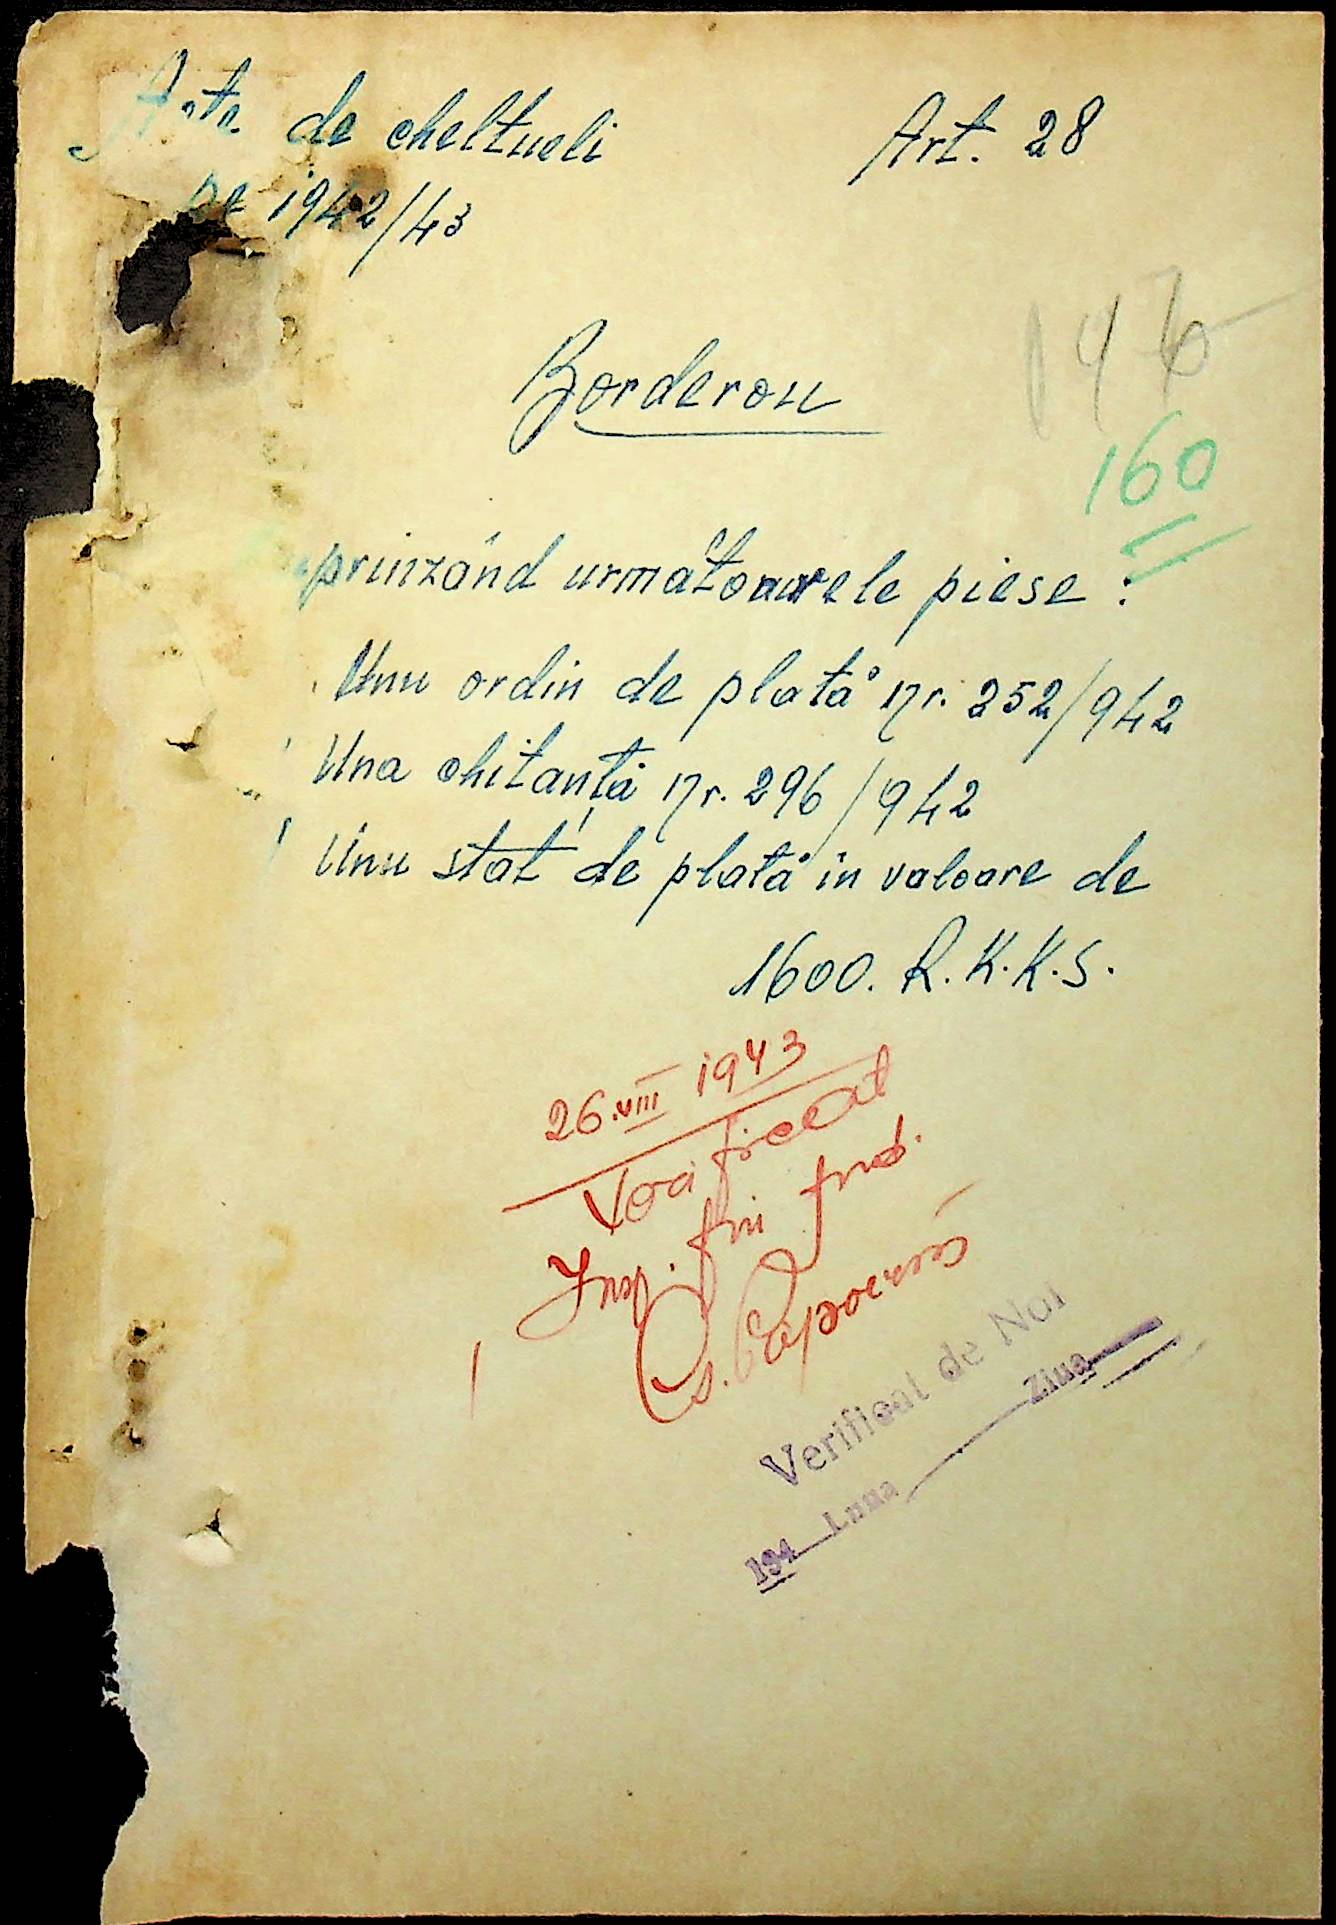 Acte de cheltueli
Art. 28
pe 1942/43
Borderou
146
160
prinzând următoarele piese :
Unu ordin de plată nr. 252/942
Una chitanță nr. 296/942
Unu stat de plată în valoare de
1600. R.K.K.S.
26.VIII 1943
Verificat
Insp. fin
Verificat de Noi
194 Luna Ziua